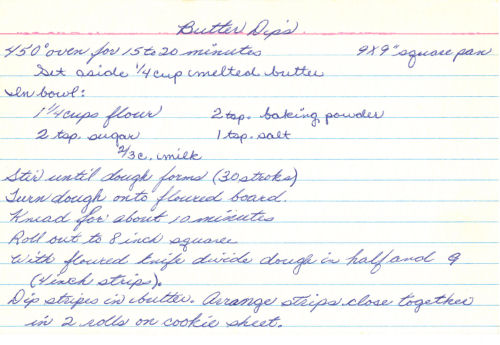 Butter Dips
450° oven for 15 to 20 minutes 9X9" square pan
Set aside 1/4 cup melted butter
In bowl:
1 1/4 cups flour 2 tsp. baking powder
2 tsp. sugar 1 tsp. salt
2/3 c. milk
Stir until dough forms (30 stroks)
Turn dough onto floured board.
Knead for about 10 minutes
Roll out to 8 inch square
With floured knife divide dough in half and 9
(4 inch strips).
Dip stripes in butter. Arrange strips close together
in 2 rolls on cookie sheet.